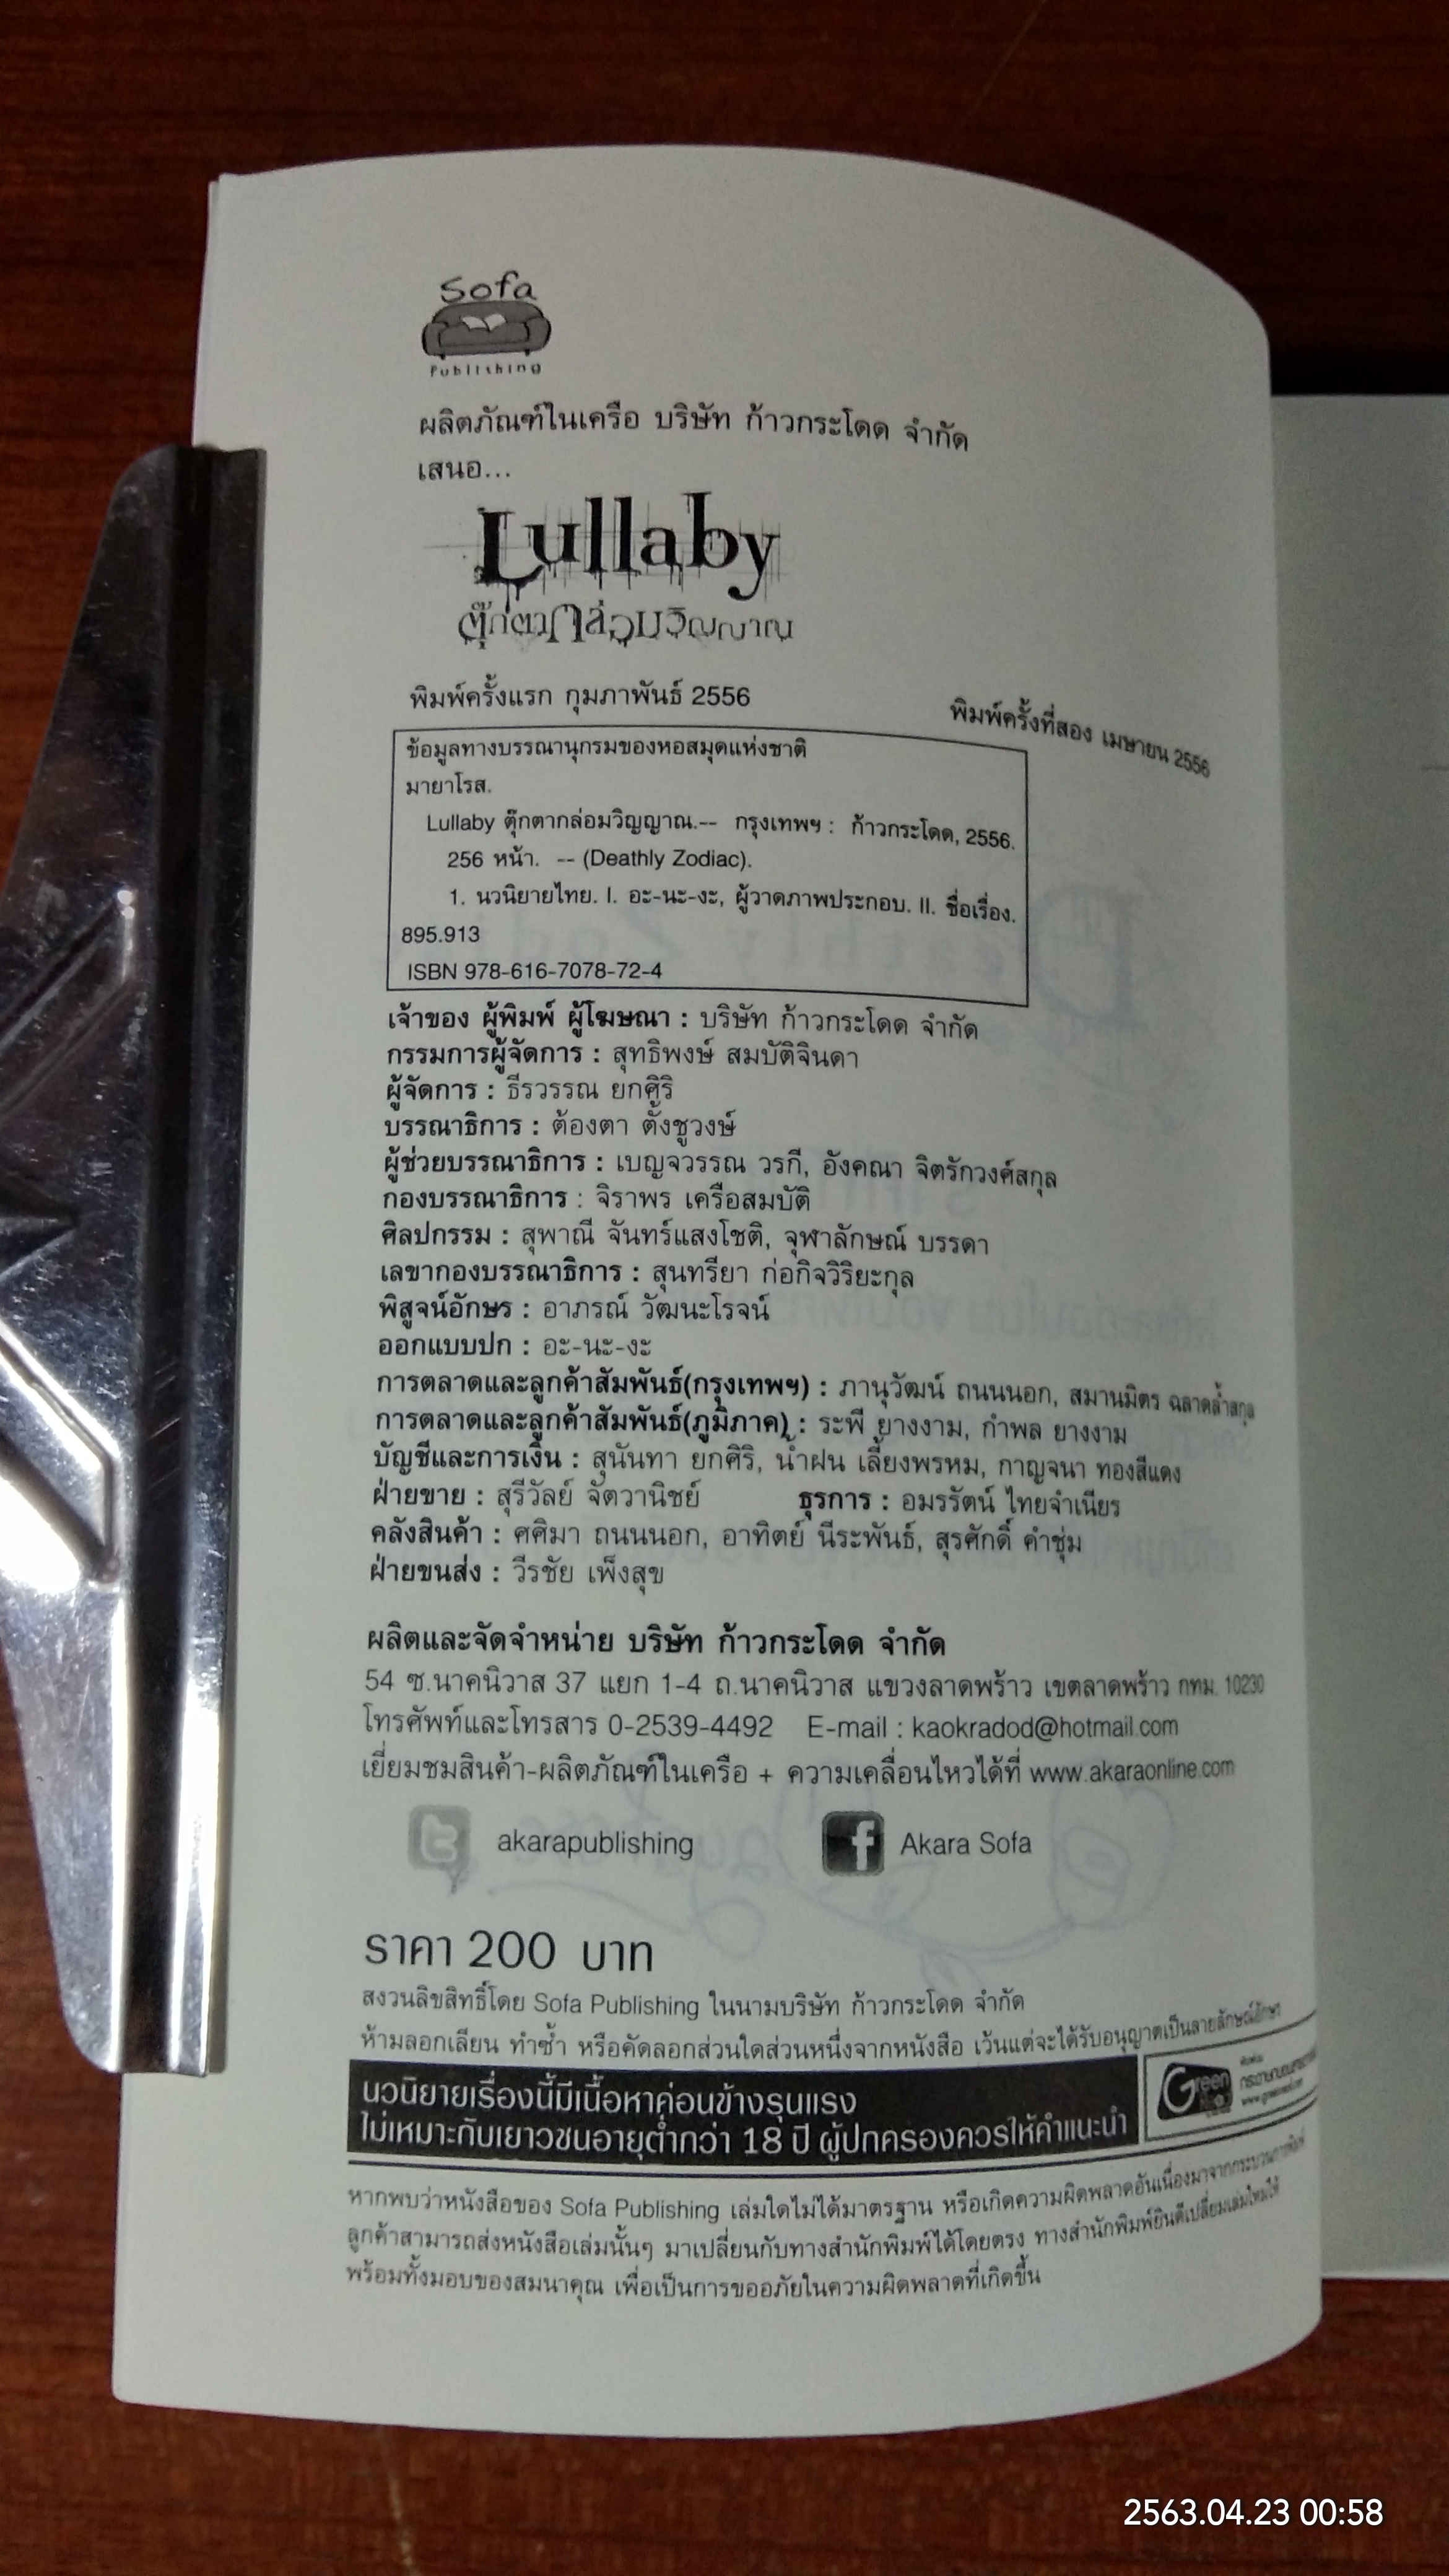 Sofa
Publishing
ผลิตภัณฑ์ในเครือ บริษัท ก้าวกระโดด จำกัด
เสนอ...
Lullaby
ตุ๊กตากล่อมวิญญาณ
พิมพ์ครั้งแรก กุมภาพันธ์ 2556 พิมพ์ครั้งที่สอง เมษายน 2556
ข้อมูลทางบรรณานุกรมของหอสมุดแห่งชาติ
มายาโรส.
Lullaby ตุ๊กตากล่อมวิญญาณ.-- กรุงเทพฯ : ก้าวกระโดด, 2556.
256 หน้า. -- (Deathly Zodiac).
1. นวนิยายไทย. I. อะ-นะ-งะ, ผู้วาดภาพประกอบ. II. ชื่อเรื่อง.
895.913
ISBN 978-616-7078-72-4
เจ้าของ ผู้พิมพ์ ผู้โฆษณา : บริษัท ก้าวกระโดด จำกัด
กรรมการผู้จัดการ : สุทธิพงษ์ สมบัติจินดา
ผู้จัดการ : ธีรวรรณ ยกศิริ
บรรณาธิการ : ต้องตา ตั้งชูวงษ์
ผู้ช่วยบรรณาธิการ : เบญจวรรณ วรกี, อังคณา จิตรักวงศ์สกุล
กองบรรณาธิการ : จิราพร เครือสมบัติ
ศิลปกรรม : สุพาณี จันทร์แสงโชติ, จุฬาลักษณ์ บรรดา
เลขากองบรรณาธิการ : สุนทรียา ก่อกิจวิริยะกุล
พิสูจน์อักษร : อาภรณ์ วัฒนะโรจน์
ออกแบบปก : อะ-นะ-งะ
การตลาดและลูกค้าสัมพันธ์(กรุงเทพฯ) : ภานุวัฒน์ ถนนนอก, สมานมิตร ฉลาดล้ำสกุล
การตลาดและลูกค้าสัมพันธ์(ภูมิภาค) : ระพี ยางงาม, กำพล ยางงาม
บัญชีและการเงิน : สุนันทา ยกศิริ, น้ำฝน เลี้ยงพรหม, กาญจนา ทองสีแดง
ฝ่ายขาย : สุรีวัลย์ จัตวานิชย์ ธุรการ : อมรรัตน์ ไทยจำเนียร
คลังสินค้า : ศศิมา ถนนนอก, อาทิตย์ นีระพันธ์, สุรศักดิ์ คำชุ่ม
ฝ่ายขนส่ง : วีรชัย เพ็งสุข
ผลิตและจัดจำหน่าย บริษัท ก้าวกระโดด จำกัด
54 ซ.นาคนิวาส 37 แยก 1-4 ถ.นาคนิวาส แขวงลาดพร้าว เขตลาดพร้าว กทม. 10230
โทรศัพท์และโทรสาร 0-2539-4492 E-mail : kaokradod@hotmail.com
เยี่ยมชมสินค้า-ผลิตภัณฑ์ในเครือ + ความเคลื่อนไหวได้ที่ www.akaraonline.com
akarapublishing Akara Sofa
ราคา 200 บาท
สงวนลิขสิทธิ์โดย Sofa Publishing ในนามบริษัท ก้าวกระโดด จำกัด
ห้ามลอกเลียน ทำซ้ำ หรือคัดลอกส่วนใดส่วนหนึ่งจากหนังสือ เว้นแต่จะได้รับอนุญาตเป็นลายลักษณ์อักษร
นวนิยายเรื่องนี้มีเนื้อหาค่อนข้างรุนแรง
ไม่เหมาะกับเยาวชนอายุต่ำกว่า 18 ปี ผู้ปกครองควรให้คำแนะนำ
Green
หากพบว่าหนังสือของ Sofa Publishing เล่มใดไม่ได้มาตรฐาน หรือเกิดความผิดพลาดอันเนื่องมาจากกระบวนการพิมพ์
ลูกค้าสามารถส่งหนังสือเล่มนั้นๆ มาเปลี่ยนกับทางสำนักพิมพ์ได้โดยตรง ทางสำนักพิมพ์ยินดีเปลี่ยนเล่มใหม่ให้
พร้อมทั้งมอบของสมนาคุณ เพื่อเป็นการขออภัยในความผิดพลาดที่เกิดขึ้น
2563.04.23 00:58